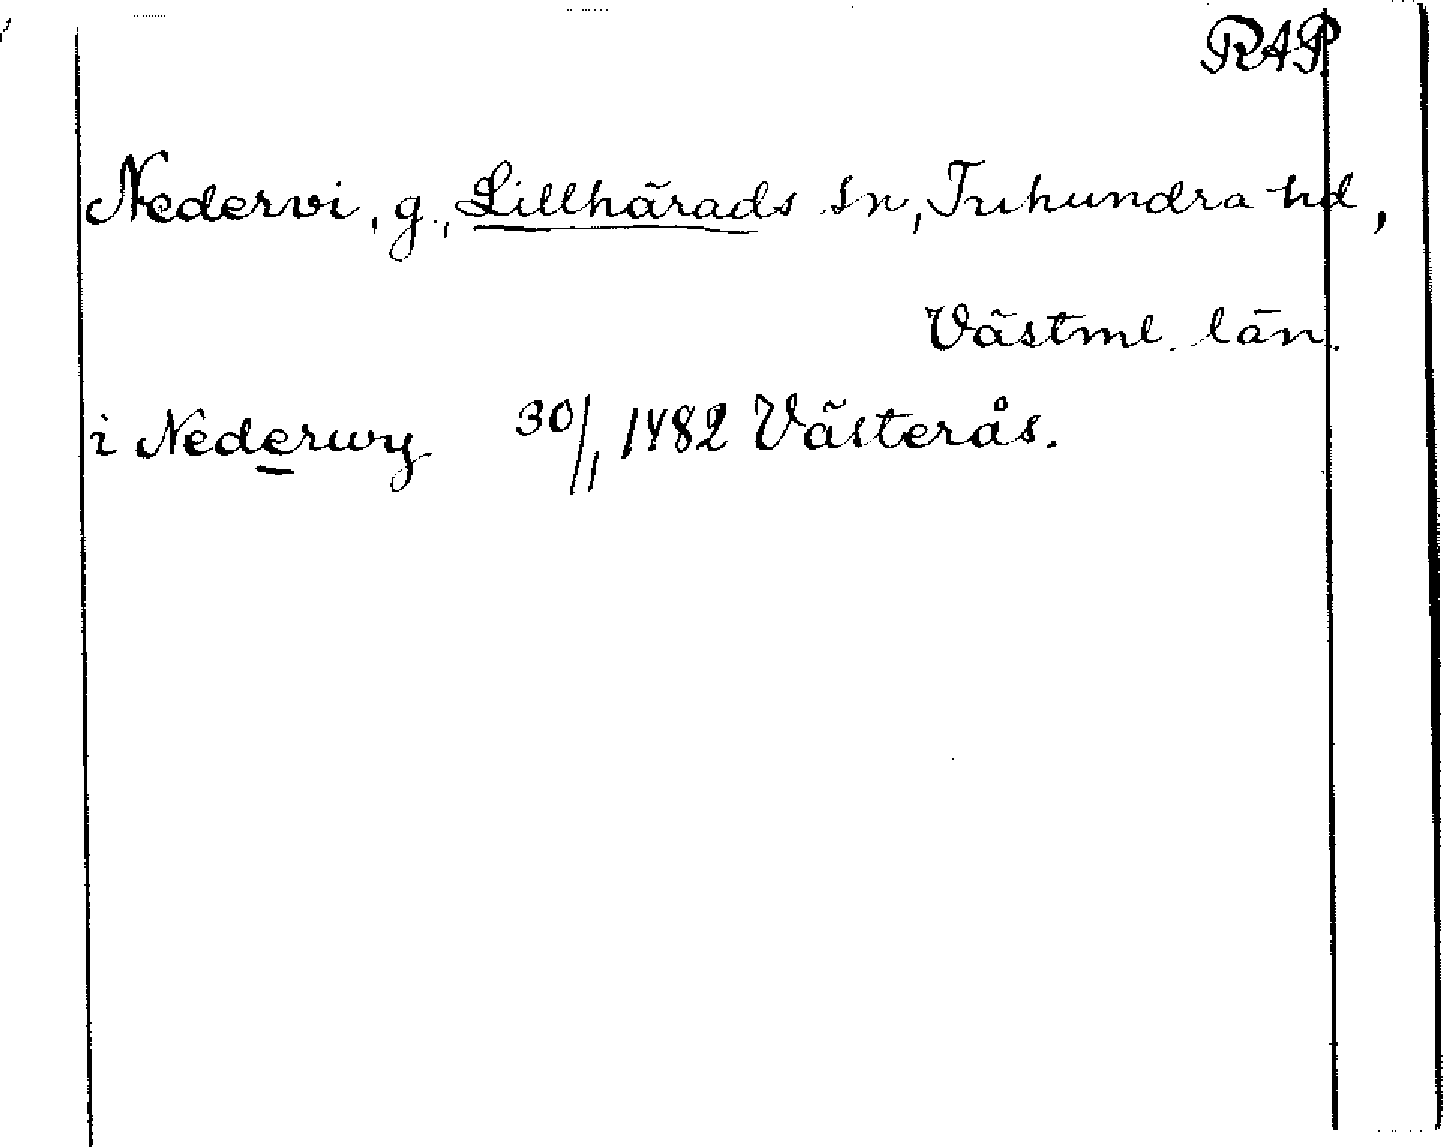 RAP.
Nedervi, g., Lillhärads sn, Tuhundra hd,
Västml. län.
i Nederwy 30/1 1482 Västerås.